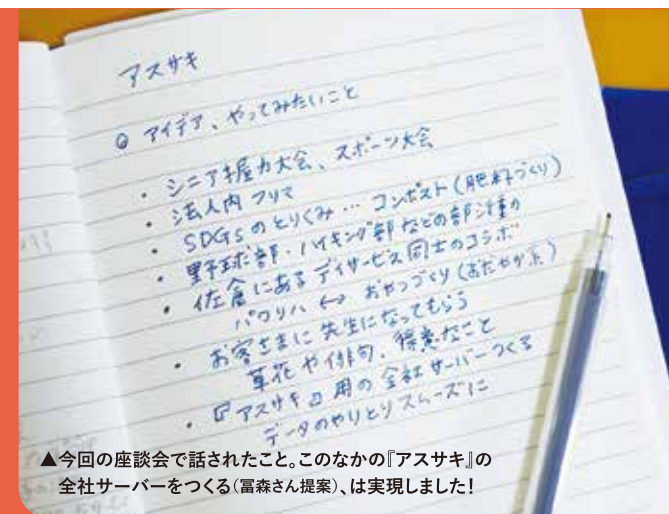 アスサキ
Q アイデア、やってみたいこと
・シニア握力大会、スポーツ大会
・法人内フリマ
・SDGsのとりくみ… コンポスト(肥料づくり)
・野球部・ハイキング部などの部活動
・佐倉にあるデイサービス同士のコラボ
パワリハ ↔ おやつづくり(おだやか系)
・お客さまに先生になってもらう
草花や俳句、得意なこと
・『アスサキ』用の会社サーバーつくる
データのやりとりスムーズに
▲今回の座談会で話されたこと。このなかの『アスサキ』の
全社サーバーをつくる(冨森さん提案)、は実現しました!